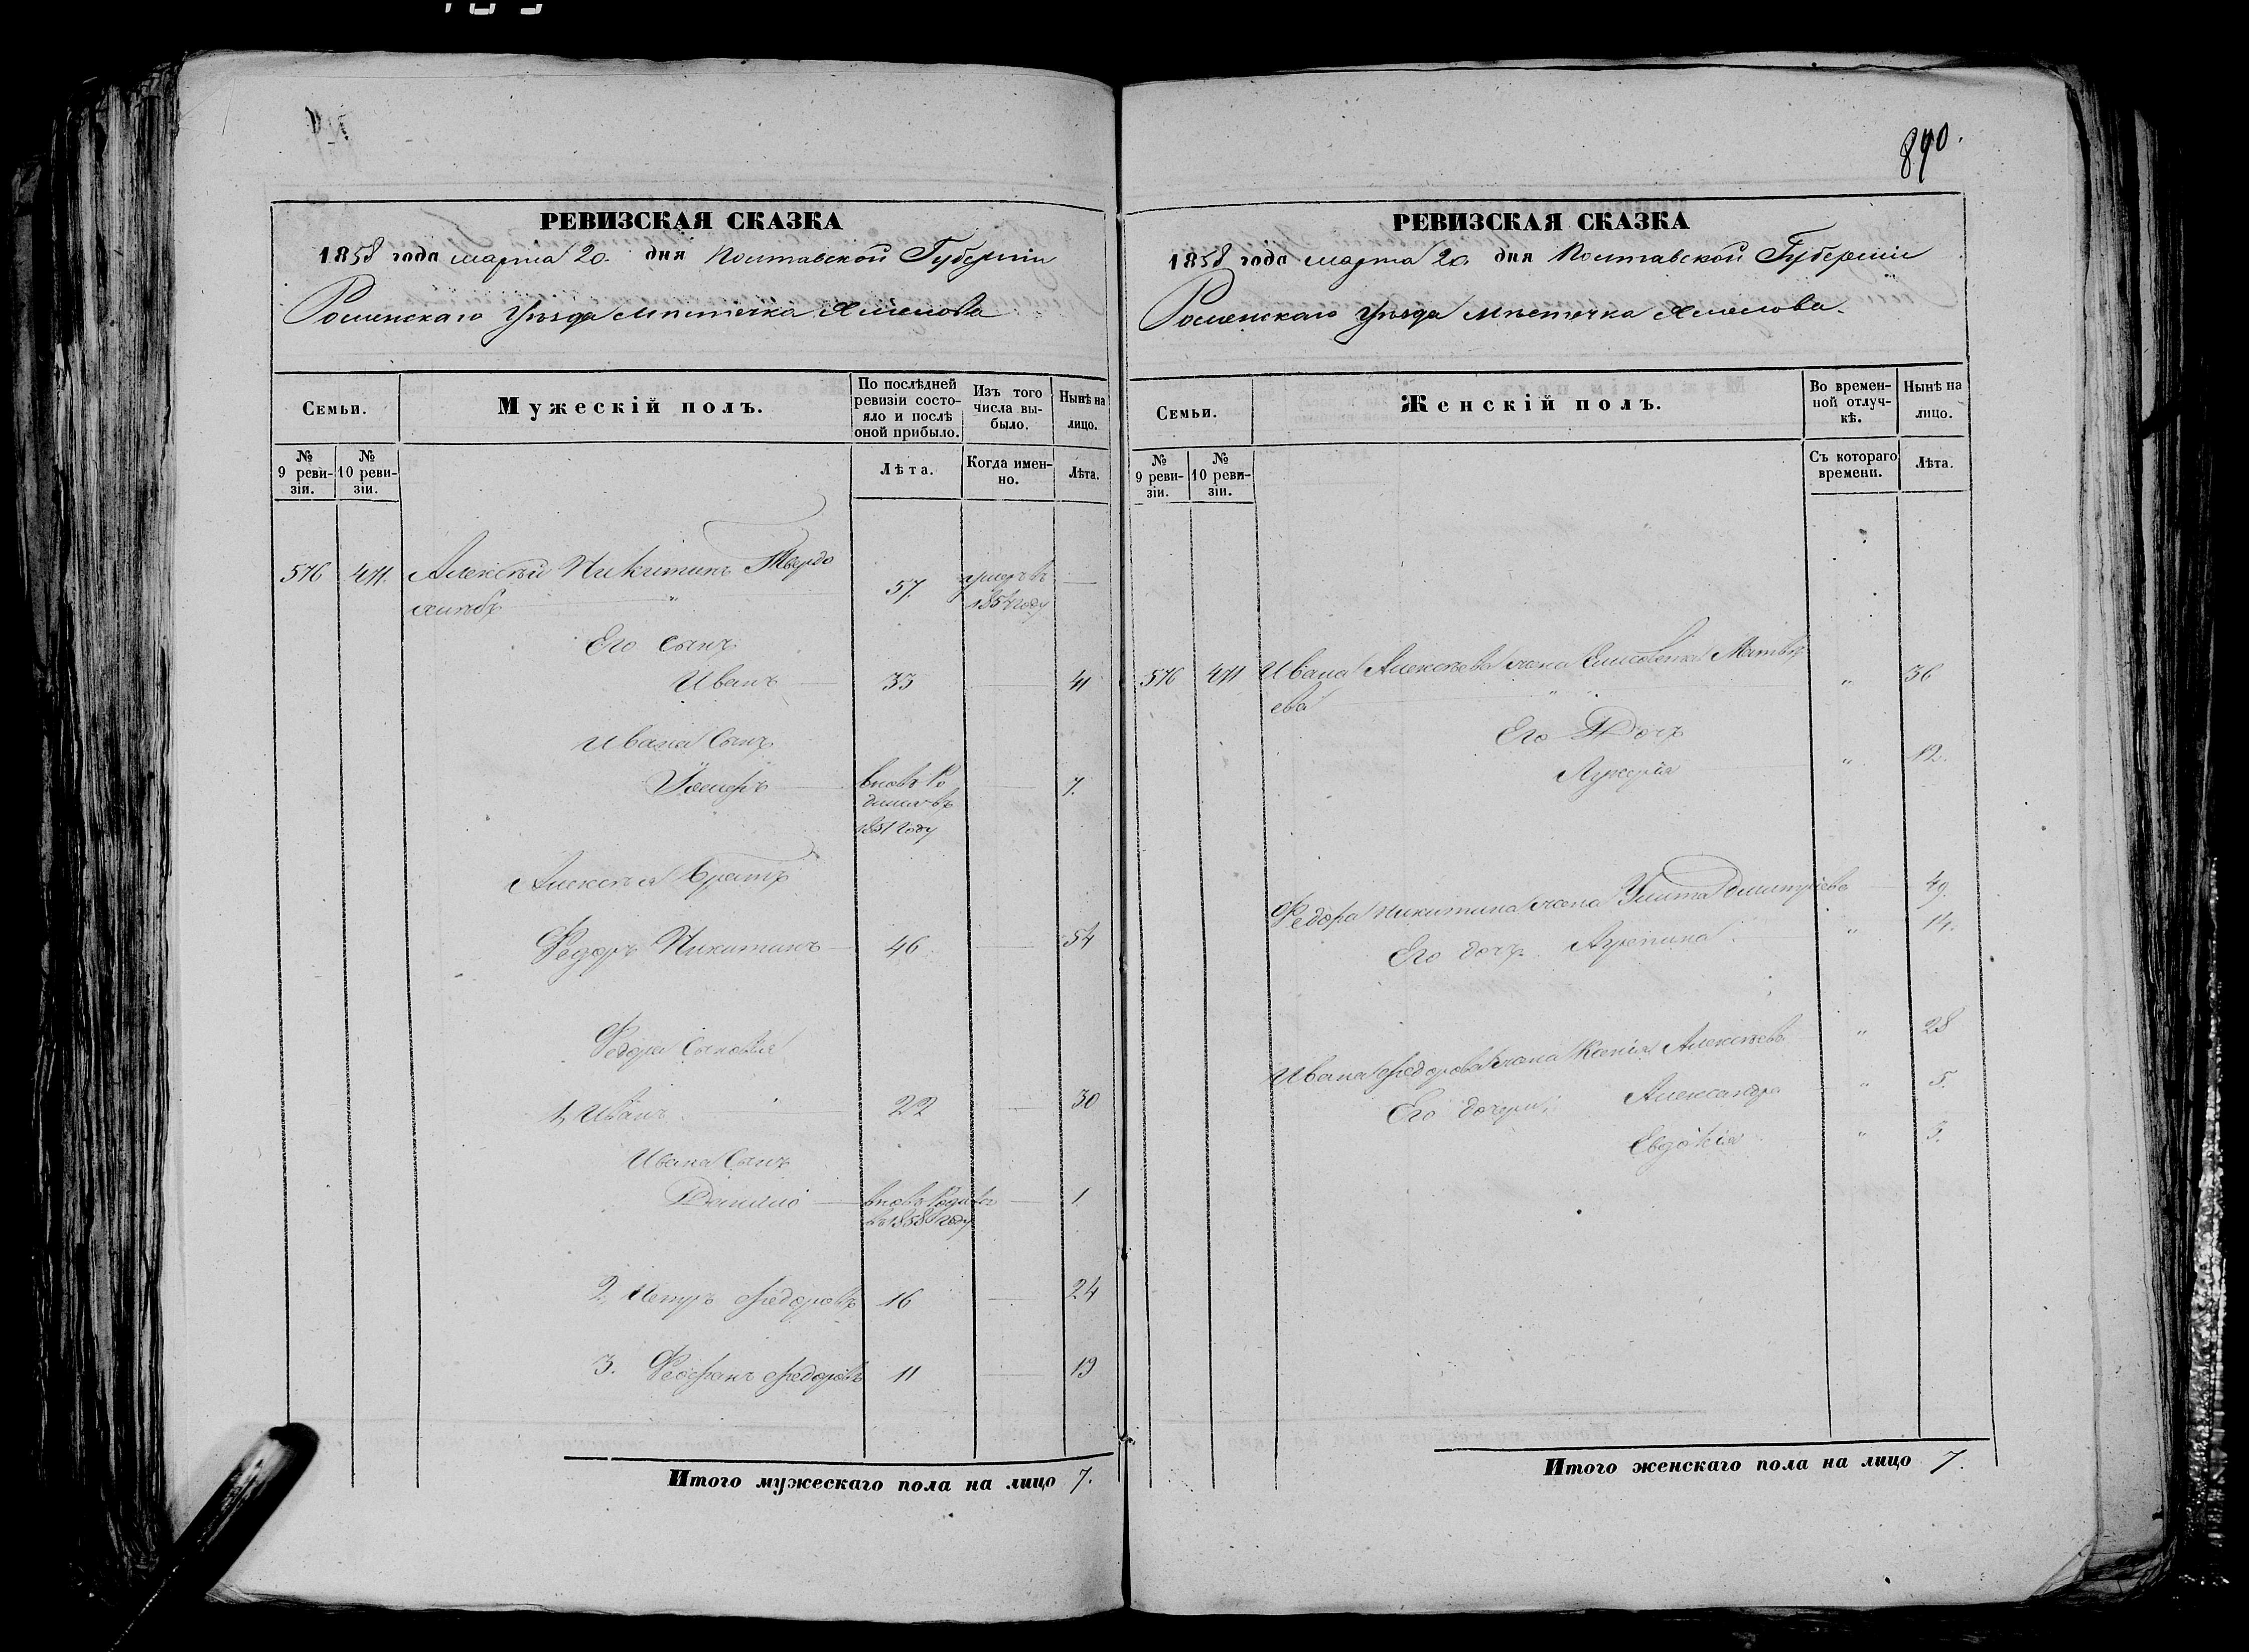 890.
РЕВИЗСКАЯ СКАЗКА
1858 года марта 20. дня Полтавской Губерніи
Роменскаго Уѣзда Мѣстечка Смелова
Семьи.
Мужескій полъ.
По послѣдней ревизіи состояло и послѣ оной прибыло.
Изъ того числа выбыло.
Нынѣ на лицо.
№ 9 ревизіи.
№ 10 ревизіи.
Лѣта.
Когда именно.
Лѣта.
576 411. Алексѣй Никитинъ Твердо 57. умеръ въ —
хлѣбъ 1854 году
Его сынъ
Иванъ 33 — 41
Ивана Сынъ
вновь Ро — 7.
дился въ
1851 году
Алексѣя Братъ
Федоръ Никитинъ 46 — 54
Федора Сыновья
1, Иванъ 22 — 30
Ивана Сынъ
Данило вновь Родивъ — 1
въ 1858 году
2, Петръ Федоровъ 16 — 24
3. Феофанъ Федоровъ 11 — 19
Итого мужескаго пола на лицо 7.
РЕВИЗСКАЯ СКАЗКА
1858 года марта 20. дня Полтавской Губерніи
Роменскаго Уѣзда Мѣстечка Смелова.
Семьи.
Женскій полъ.
Во временной отлучкѣ.
Нынѣ на лицо.
№ 9 ревизіи.
№ 10 ревизіи.
Съ котораго времени.
Лѣта.
576 411 Ивана Алексѣева жена Елисавета Матвѣ " 36
ева
Его Дочь
Лукерія " 12.
Федора Никитина жена Улита Дмитріева 49.
Его дочь Агрепина " 14.
Ивана Федорова жена Ксенія Алексѣева " 28
Его дочери: Александра " 5.
Евдокія " 3.
Итого женскаго пола на лицо 7.